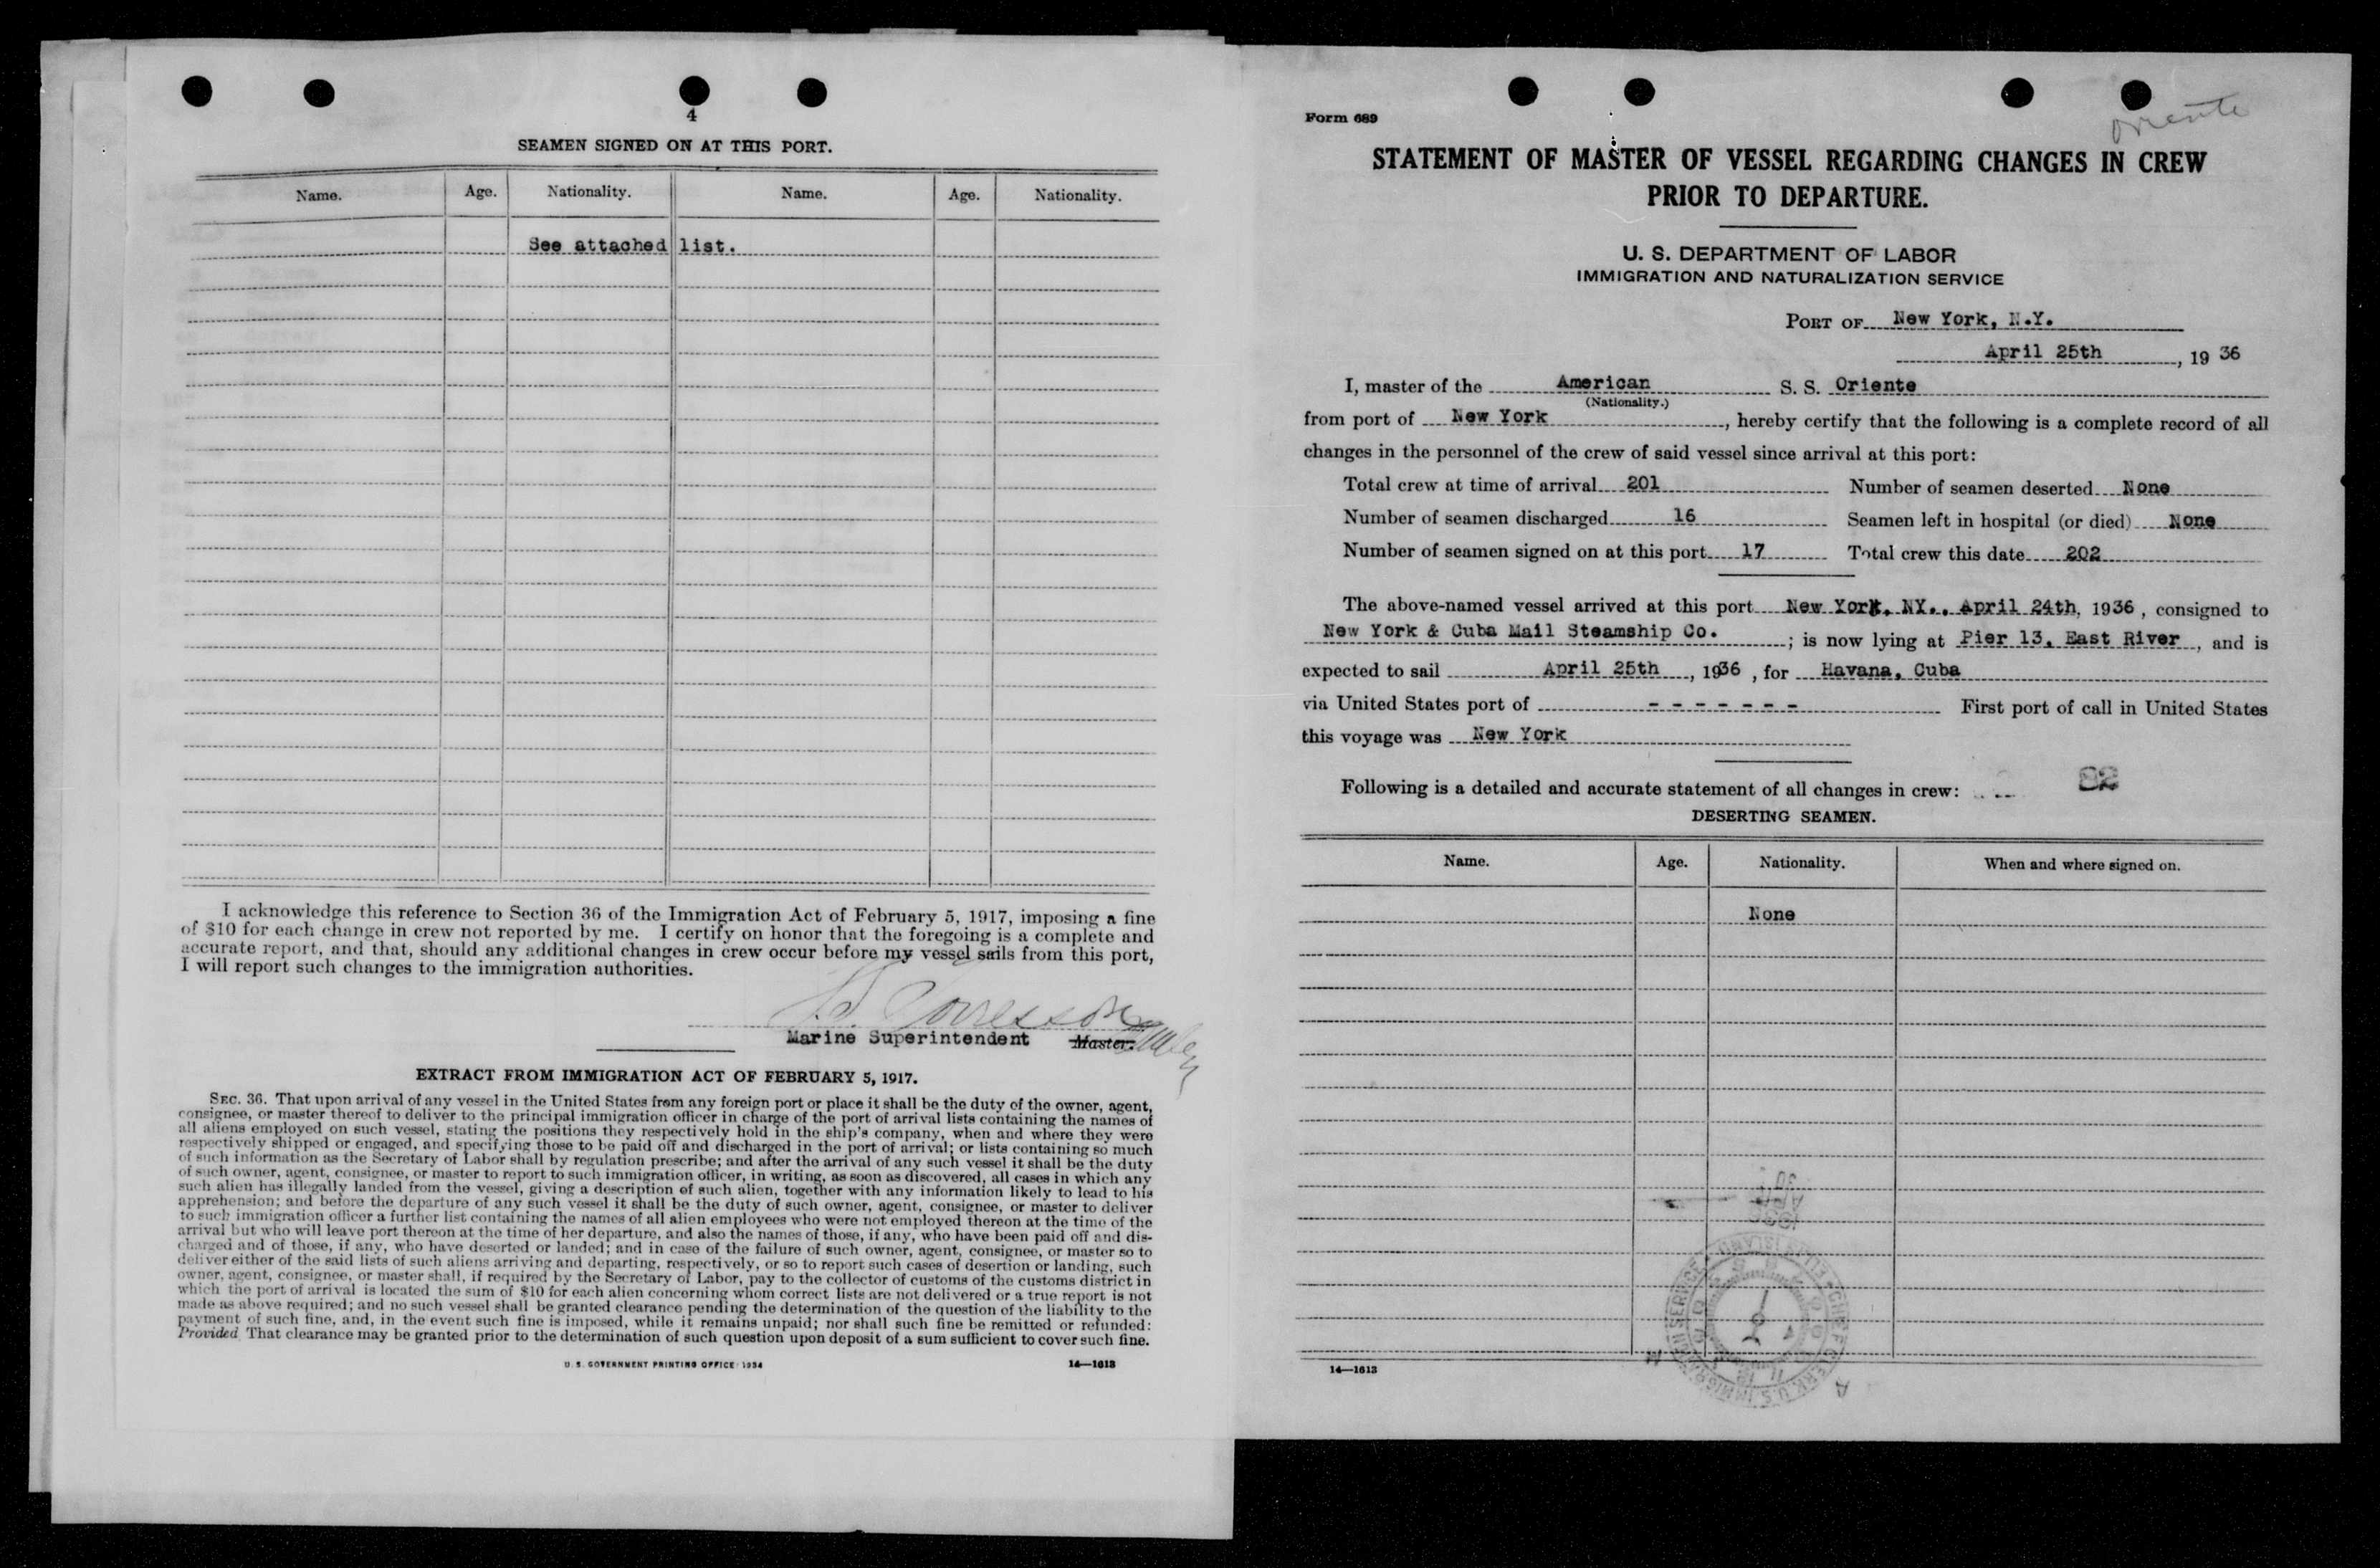 4
SEAMEN SIGNED ON AT THIS PORT.
Name. Age. Nationality. Name. Age. Nationality.
See attached list.
I acknowledge this reference to Section 36 of the Immigration Act of February 5, 1917, imposing a fine
of $10 for each change in crew not reported by me. I certify on honor that the foregoing is a complete and
accurate report, and that, should any additional changes in crew occur before my vessel sails from this port,
I will report such changes to the immigration authorities.
Marine Superintendent Master.
EXTRACT FROM IMMIGRATION ACT OF FEBRUARY 5, 1917.
SEC. 36. That upon arrival of any vessel in the United States from any foreign port or place it shall be the duty of the owner, agent,
consignee, or master thereof to deliver to the principal immigration officer in charge of the port of arrival lists containing the names of
all aliens employed on such vessel, stating the positions they respectively hold in the ship's company, when and where they were
respectively shipped or engaged, and specifying those to be paid off and discharged in the port of arrival; or lists containing so much
of such information as the Secretary of Labor shall by regulation prescribe; and after the arrival of any such vessel it shall be the duty
of such owner, agent, consignee, or master to report to such immigration officer, in writing, as soon as discovered, all cases in which any
such alien has illegally landed from the vessel, giving a description of such alien, together with any information likely to lead to his
apprehension; and before the departure of any such vessel it shall be the duty of such owner, agent, consignee, or master to deliver
to such immigration officer a further list containing the names of all alien employees who were not employed thereon at the time of the
arrival but who will leave port thereon at the time of her departure, and also the names of those, if any, who have been paid off and dis-
charged and of those, if any, who have deserted or landed; and in case of the failure of such owner, agent, consignee, or master so to
deliver either of the said lists of such aliens arriving and departing, respectively, or so to report such cases of desertion or landing, such
owner, agent, consignee, or master shall, if required by the Secretary of Labor, pay to the collector of customs of the customs district in
which the port of arrival is located the sum of $10 for each alien concerning whom correct lists are not delivered or a true report is not
made as above required; and no such vessel shall be granted clearance pending the determination of the question of the liability to the
payment of such fine, and, in the event such fine is imposed, while it remains unpaid; nor shall such fine be remitted or refunded:
Provided That clearance may be granted prior to the determination of such question upon deposit of a sum sufficient to cover such fine.
U. S. GOVERNMENT PRINTING OFFICE 1934 14—1613
Form 689
Oriente
STATEMENT OF MASTER OF VESSEL REGARDING CHANGES IN CREW
PRIOR TO DEPARTURE.
U. S. DEPARTMENT OF LABOR
IMMIGRATION AND NATURALIZATION SERVICE
PORT OF New York, N.Y.
April 25th, 19 36
I, master of the American S. S. Oriente
(Nationality.)
from port of New York, hereby certify that the following is a complete record of all
changes in the personnel of the crew of said vessel since arrival at this port:
Total crew at time of arrival 201 Number of seamen deserted None
Number of seamen discharged 16 Seamen left in hospital (or died) None
Number of seamen signed on at this port 17 Total crew this date 202
The above-named vessel arrived at this port New York, NY., April 24th, 1936, consigned to
New York & Cuba Mail Steamship Co.; is now lying at Pier 13, East River, and is
expected to sail April 25th, 1936, for Havana, Cuba
via United States port of - - - - - - - First port of call in United States
this voyage was New York
Following is a detailed and accurate statement of all changes in crew: 92
DESERTING SEAMEN.
Name. Age. Nationality. When and where signed on.
None
14—1613